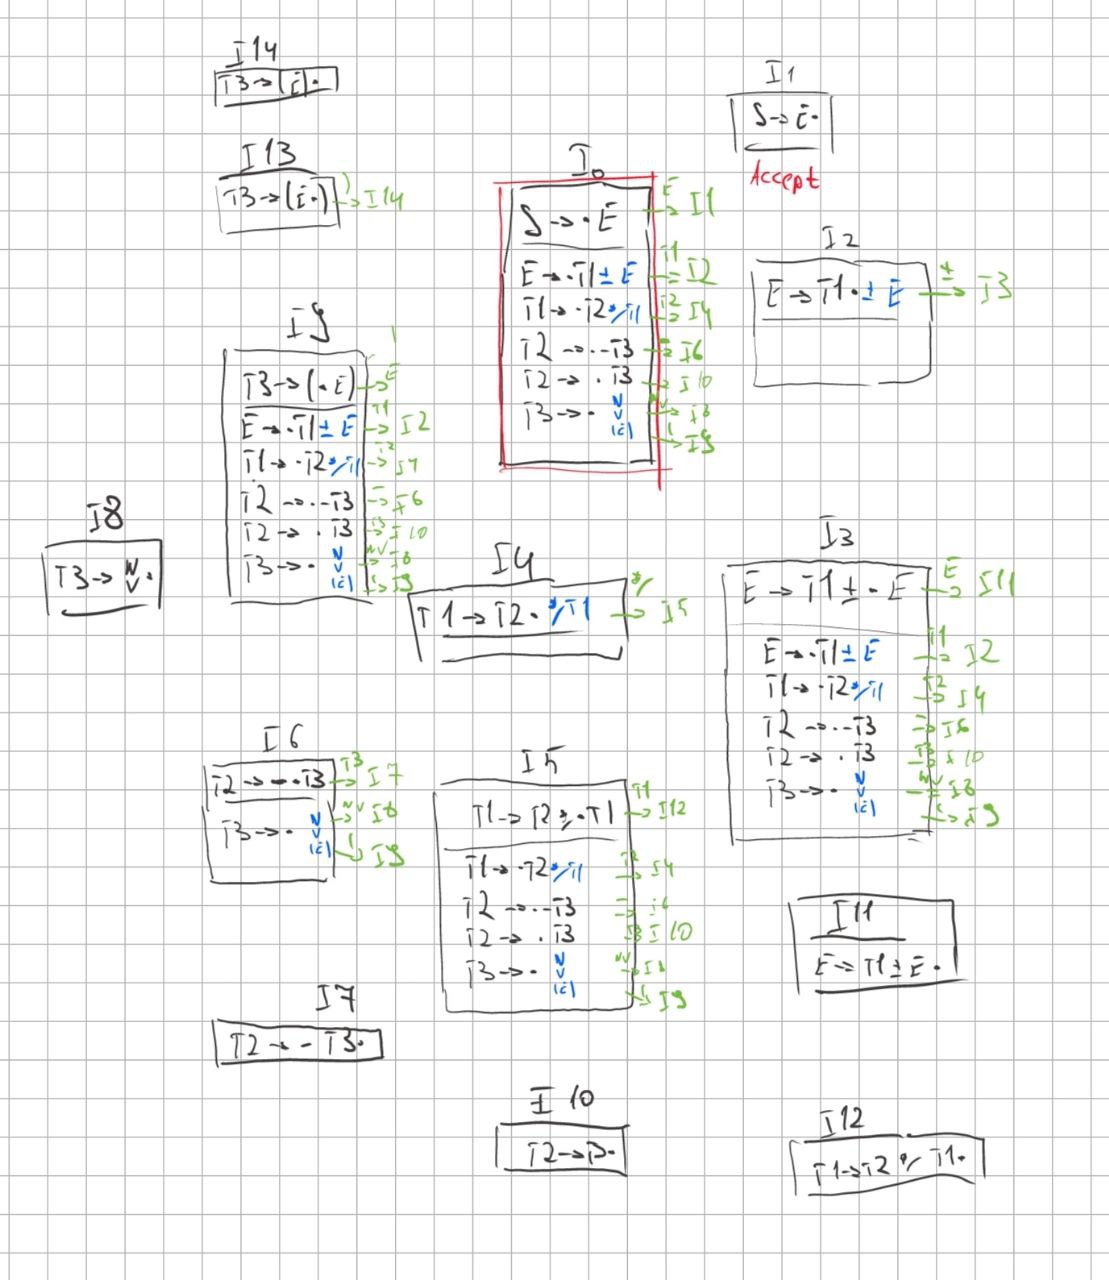 I14
T3→(E)·
I13
T3→(E·) ) → I14
I1
S→E·
Accept
I0
S→·E E → I1
E→·T1±E T1 → I2
T1→·T2*/T1 T2 → I4
T2→·-T3 - → I6
T2→·T3 → I10
T3→· N V (E) NV → I8
( → I9
I2
E→T1·±E ± → I3
I9
T3→(·E) → E
E→·T1±E T1 → I2
T1→·T2*/T1 T2 → I4
T2→·-T3 - → I6
T2→·T3 T3 → I10
T3→· N V (E) NV → I8
( → I9
I8
T3→ N V ·
I4
T1→T2·*/T1 */ → I5
I3
E→T1±·E E → I11
E→·T1±E T1 → I2
T1→·T2*/T1 T2 → I4
T2→·-T3 - → I6
T2→·T3 T3 → I10
T3→· N V (E) NV → I8
( → I9
I6
T2→-·T3 T3 → I7
T3→· N V (E) NV → I8
( → I9
I5
T1→T2*/·T1 T1 → I12
T1→·T2*/T1 T2 → I4
T2→·-T3 - → I6
T2→·T3 T3 I10
T3→· N V (E) NV → I8
( → I9
I11
E→T1±E·
I7
T2→-T3·
I10
T2→T3·
I12
T1→T2*/T1·